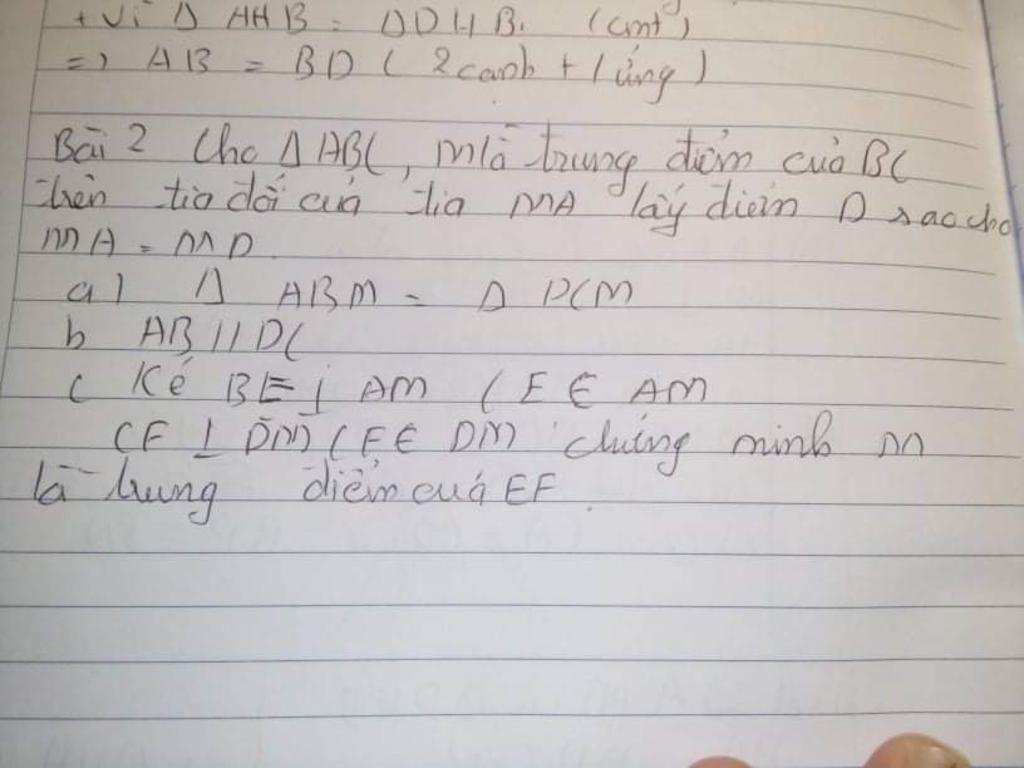 + Vì Δ AHB = ΔDHB. (cmt)
=> AB = BD ( 2 canh + / ứng )
Bài 2 Cho Δ ABC, M là trung điểm của BC
trên tia đối của tia MA lấy điểm D sao cho
MA = MD
a) Δ ABM = Δ DCM
b AB // DC
c Kẻ BE ⊥ AM ( E ∈ AM
CF ⊥ DM) ( F ∈ DM) chứng minh M
là trung điểm của EF.